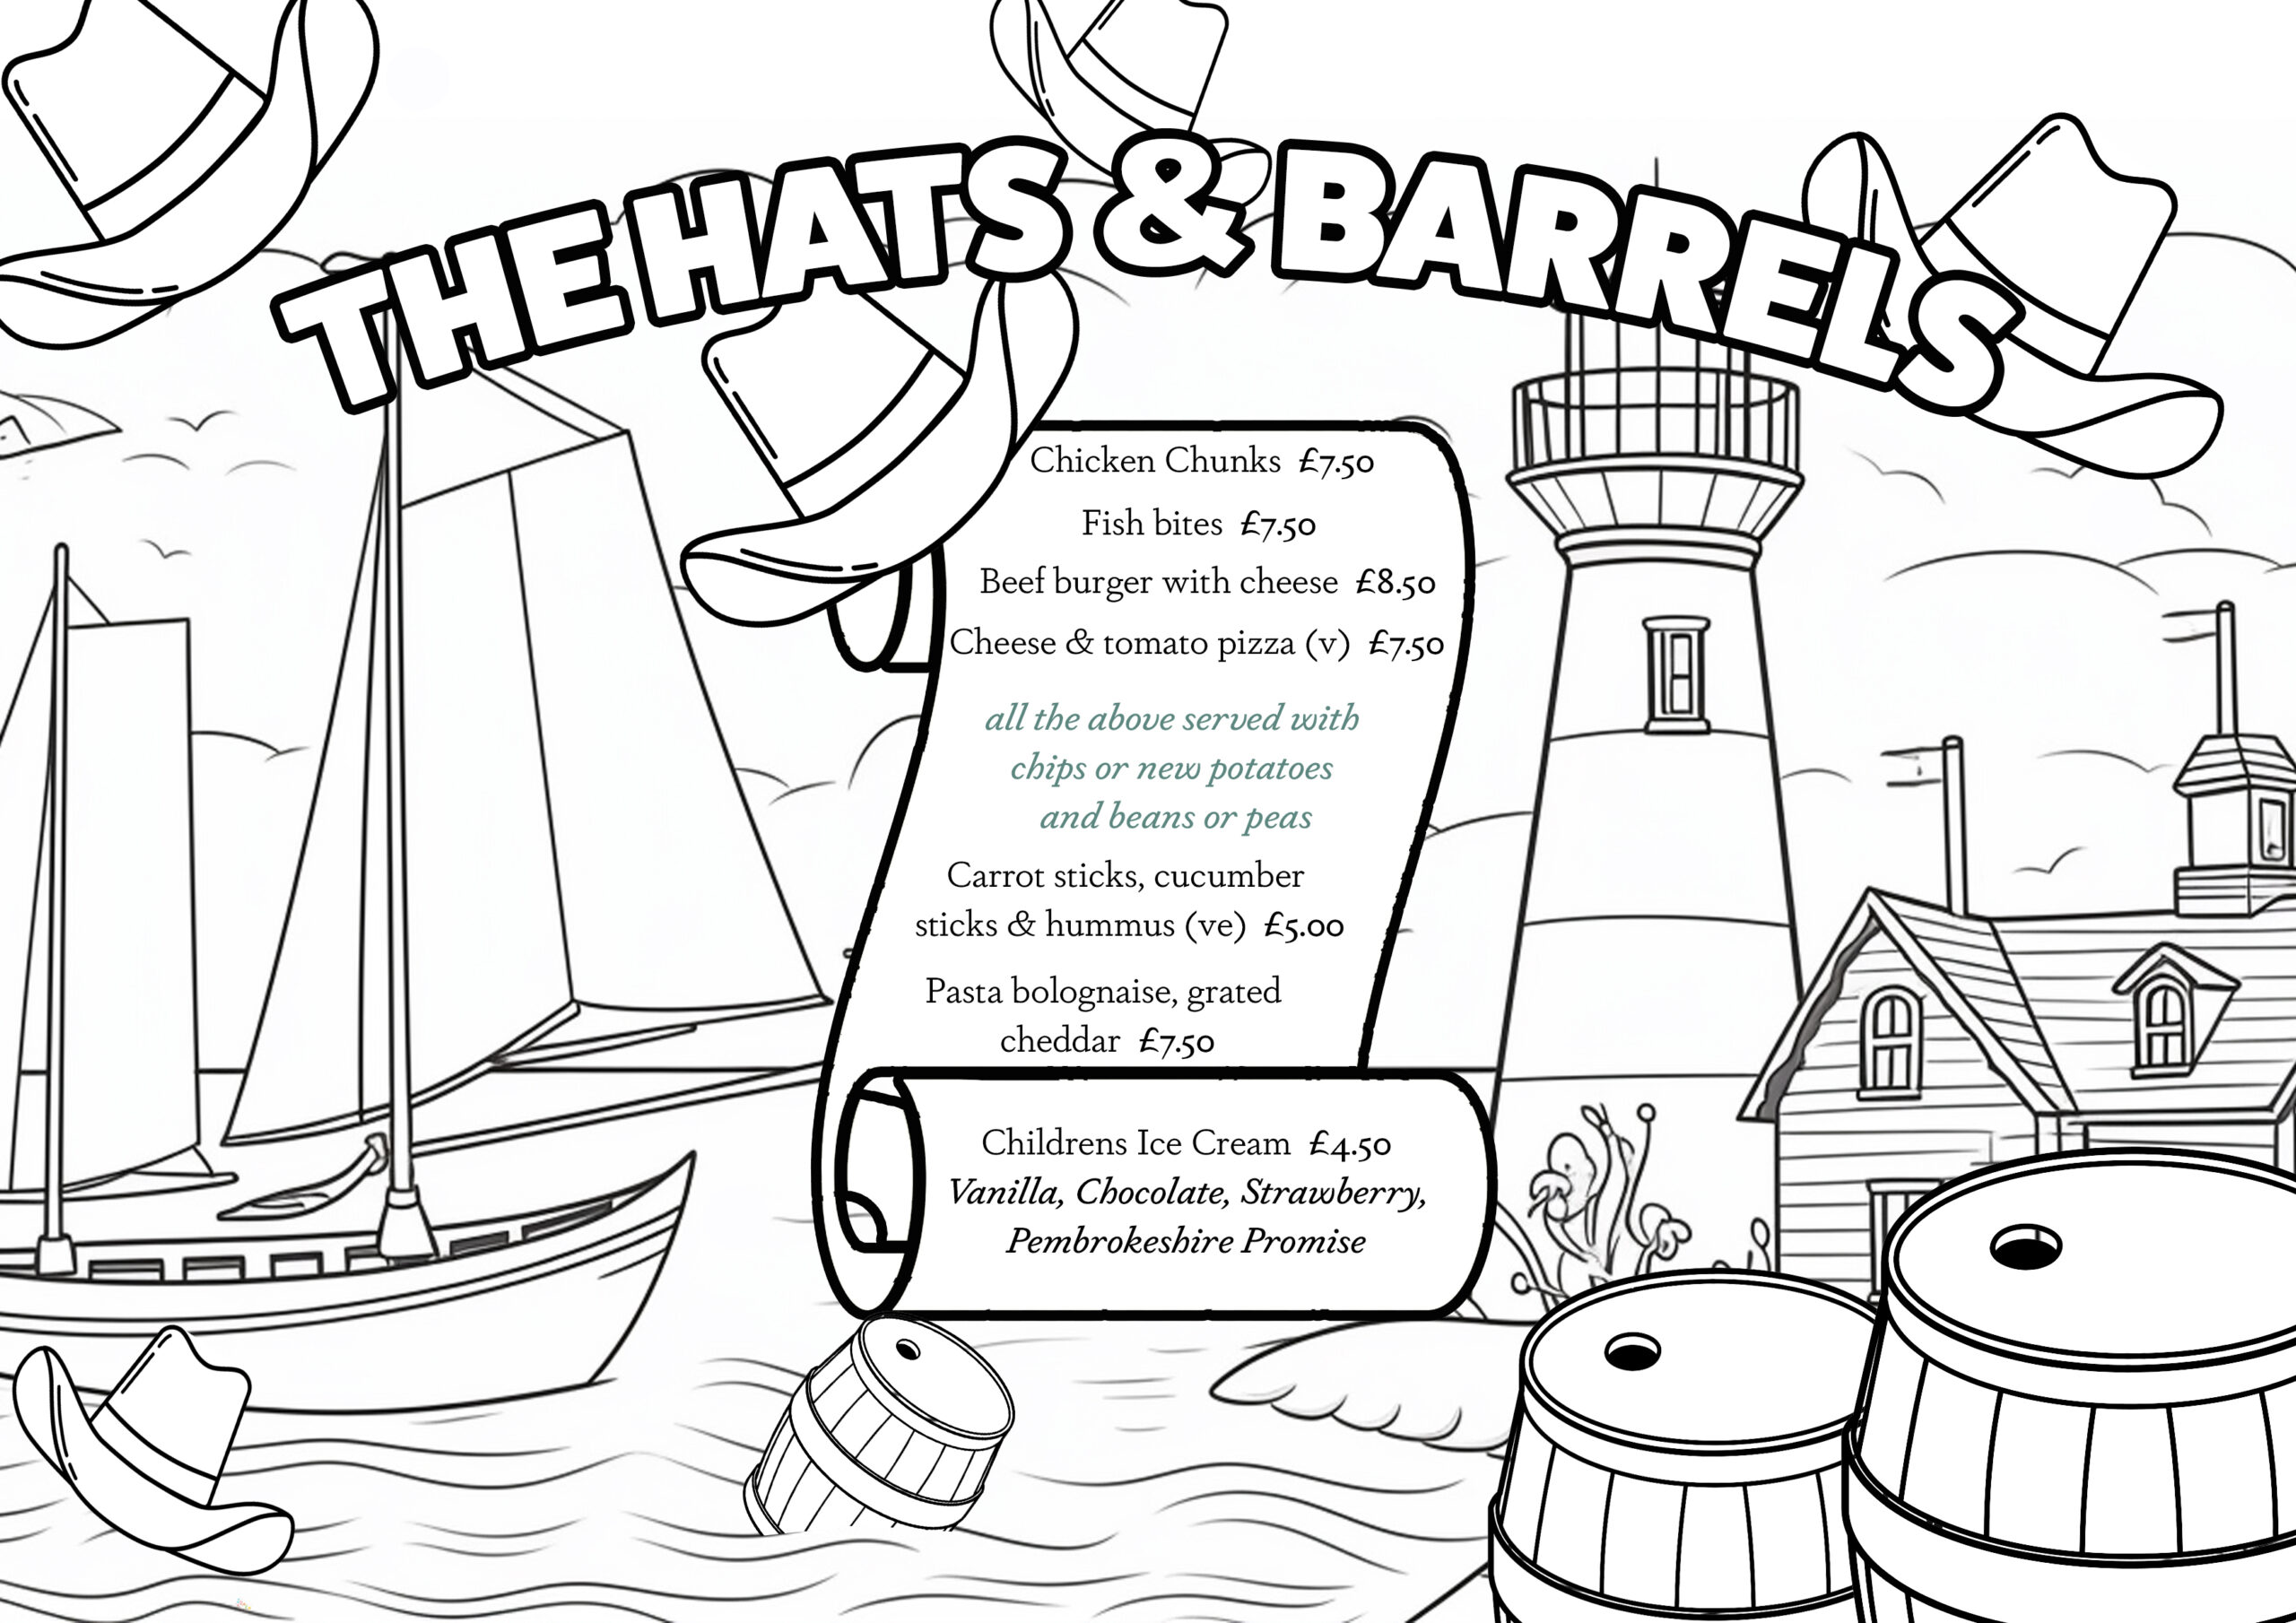 THE HATS & BARRELS
Chicken Chunks £7.50
Fish bites £7.50
Beef burger with cheese £8.50
Cheese & tomato pizza (v) £7.50
all the above served with
chips or new potatoes
and beans or peas
Carrot sticks, cucumber
sticks & hummus (ve) £5.00
Pasta bolognaise, grated
cheddar £7.50
Childrens Ice Cream £4.50
Vanilla, Chocolate, Strawberry,
Pembrokeshire Promise